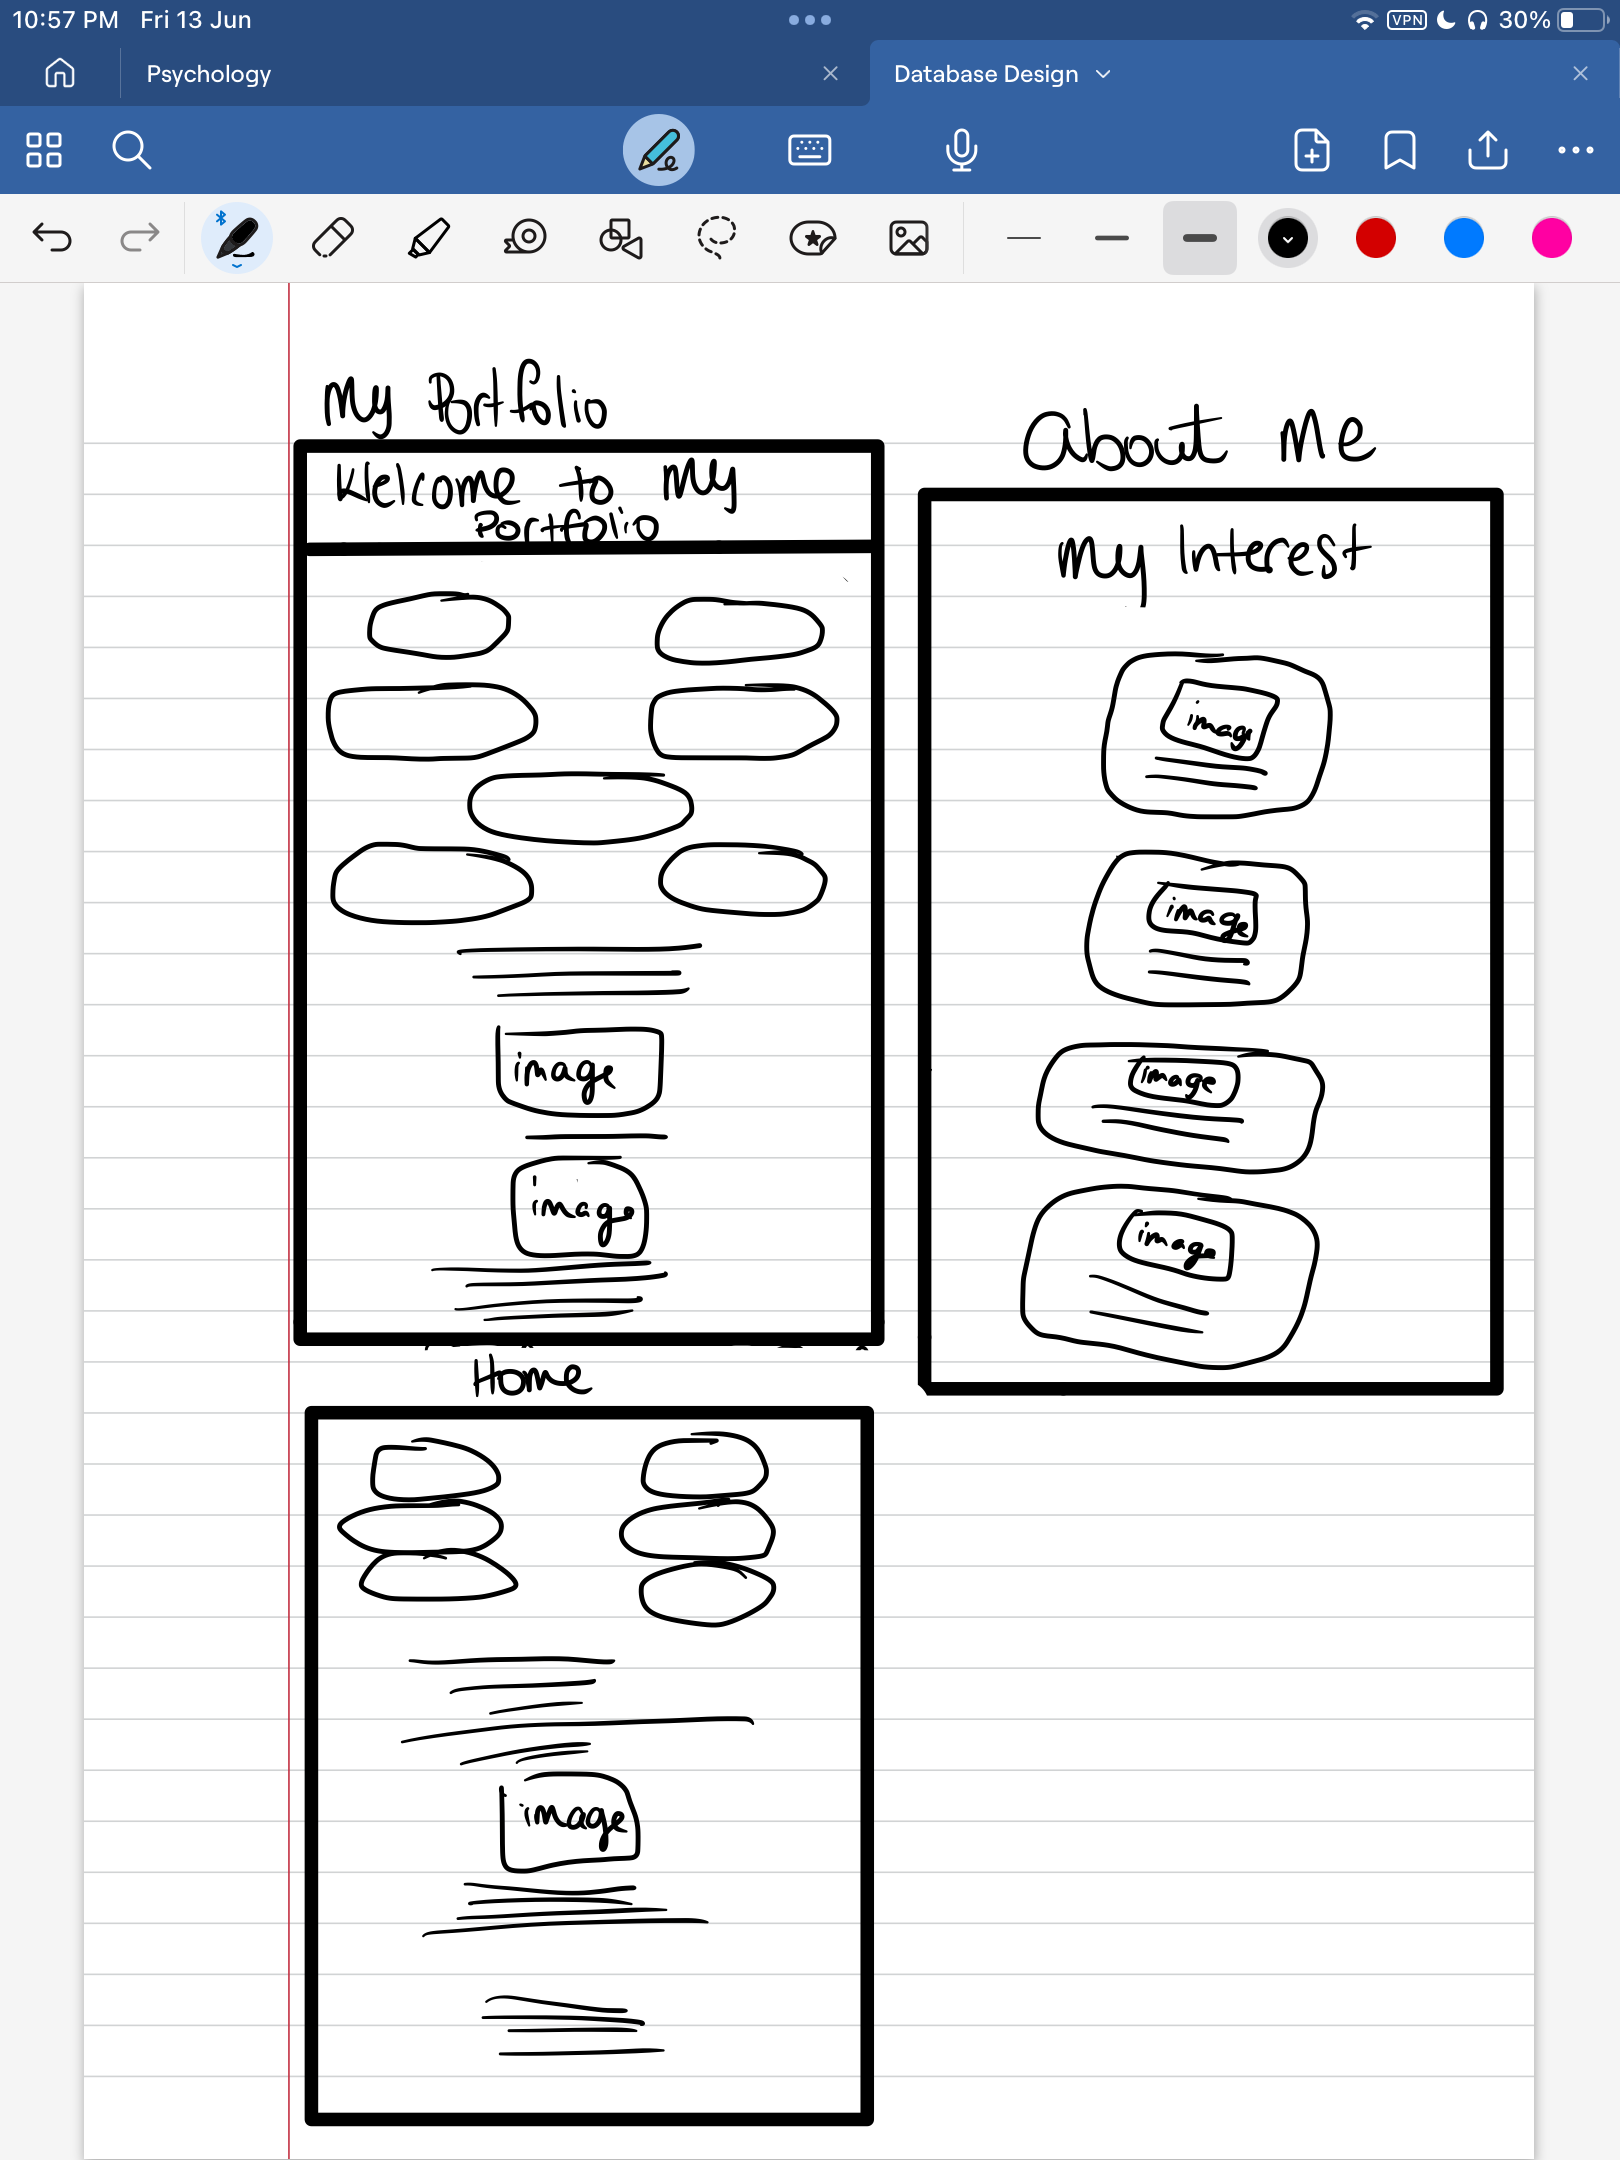 10:57 PM Fri 13 Jun
VPN 30%
Psychology
Database Design
My Portfolio
Welcome to My
Portfolio
image
image
Home
image
About Me
My Interest
image
image
image
image